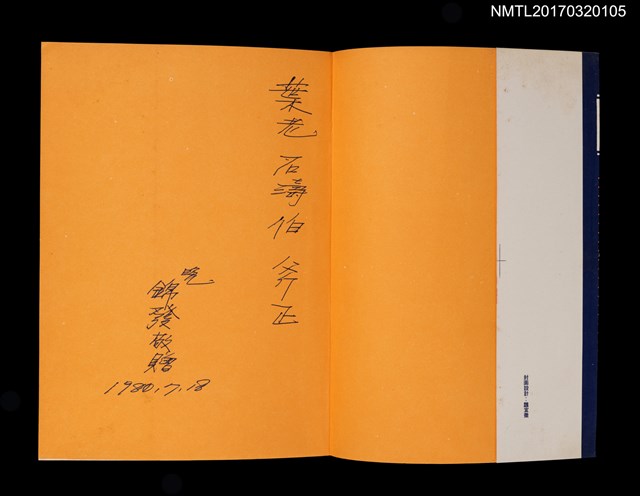 NMTL20170320105
葉老 石濤 伯 斧正
晚
錦發敬贈
1980.7.18
封面設計：